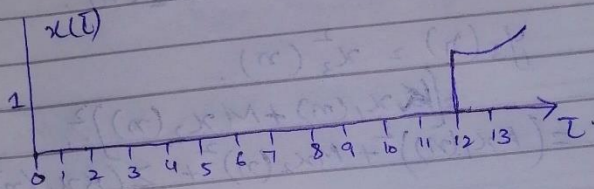 x(τ)
1
0 1 2 3 4 5 6 7 8 9 10 11 12 13 τ